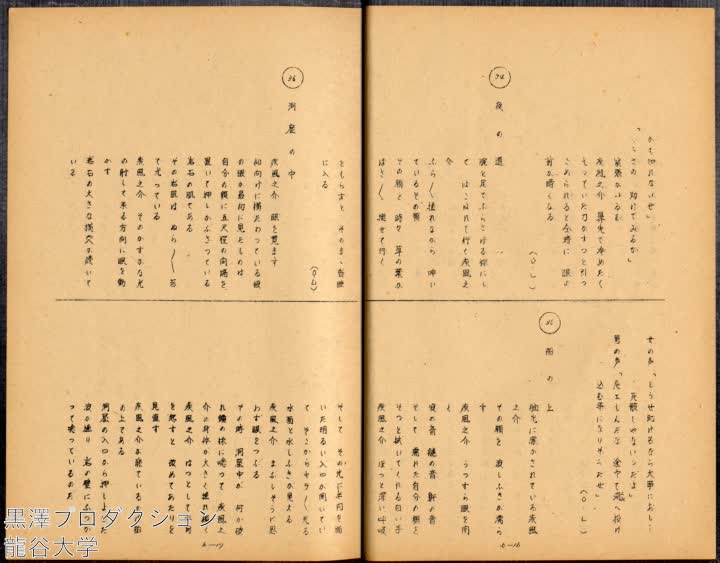 かも知れないぜ」
「‥‥さの 助けてみるか」
疾風之介 鼻先で冷めたく
もっていた刀がすっと引っ
こめられると全時に 眼よ
前が暗くなる
(O・L)
34
夜の道
腕と足でぶらさげる様にし
て はこばれて行く疾風之
介
ふら〱揺れながら 呻い
ているその顔
その顔を 時々 草の葉が
はさ〱 撫ぜて行く
35
船の上
女の声「どうせ助けるなら大事におし‥
荒頼しゃないンだよ」
男の声「死エしんだな 途中で 湖へ投げ
込む事になりそうだぜ」
(O・L)
舳先に寝かされている疾風
之介
その顔を 波しぶきが濡ら
す
疾風之介 うっすら眼を開
く
波の音 櫨の音 軒の音
そして 濡れた自分の顔を
そっと拭いてくれる白い手
疾風之介 ほっと深い呼吸
6-16
ともらすと そのまゝ昏睡
に入る
(O・L)
36
洞窟の中
疾風之介 眼を覚ます
仰向けに横たわっている彼
の眼が最初に見たものは
自分の顔に五尺程の間隔を
置いて押しかぶさっている
岩石の肌である
その岩肌は ぬら〱 苔
て光っている
疾風之介 そのかすかな光
の射して来る方向に眼を動
かす
岩石の大きな横穴が続いて
いる
そして その先に半円を描
いた明るい入口が開いてい
て そこからキラ〱光る
水面と水しぶきが見える
疾風之介 まぶしそうに思
わず眼をつぶる
その時 洞窟中が 何か破
れ鐘の様に鳴って 疾風之
介の身体が大きく揺れ動く
疾風之介 はっとして半身
を起すと 改めてあたりを
見直す
疾風之介が寝ているのは船
の上である
洞窟の入口から押しよせた
波が 岩の壁にぶつか
って鳴っているのだ
6-17
黒澤プロダクション
龍谷大学